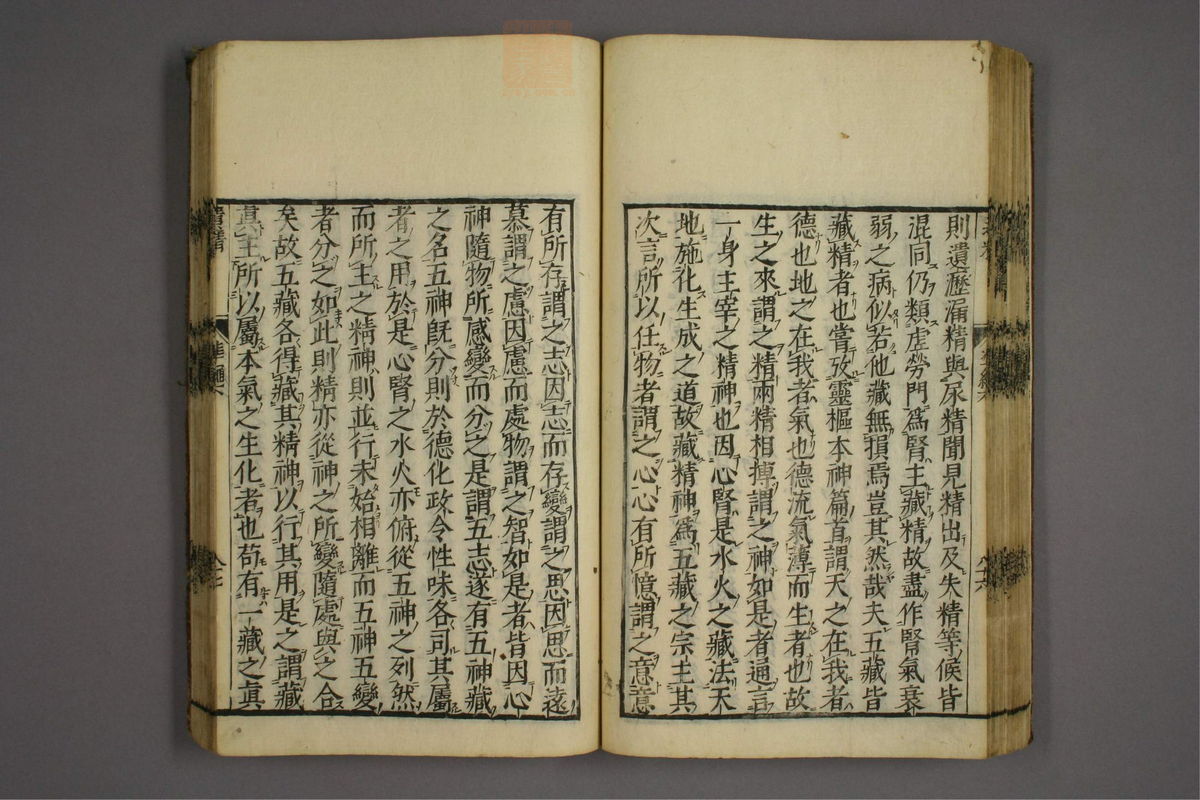 則遺瀝漏精與尿精聞見精出及失精等候皆
混同仍類虛勞門爲腎主藏精故盡作腎氣衰
弱之病似若他藏無損焉豈其然哉夫五藏皆
藏精者也嘗攷靈樞本神篇首謂天之在我者
德也地之在我者氣也德流氣薄而生者也故
生之來謂之精兩精相搏謂之神如是者通言
一身主宰之精神也因心腎是水火之藏法天
地施化生成之道故藏精神爲五藏之宗主其
次言所以任物者謂之心心有所憶謂之意意
有所存謂之志因志而存變謂之思因思而遠
慕謂之慮因慮而處物謂之智如是者皆因心
神隨物所感變而分之是謂五志遂有五神藏
之名五神旣分則於德化政令性味各司其屬
者之用於是心腎之水火亦俯從五神之列然
而所主之精神則並行未始相離而五神五變
者分之如此則精亦從神之所變隨處與之合
矣故五藏各得藏其精神以行其用是之謂藏
眞主所以屬本氣之生化者也苟有一藏之眞